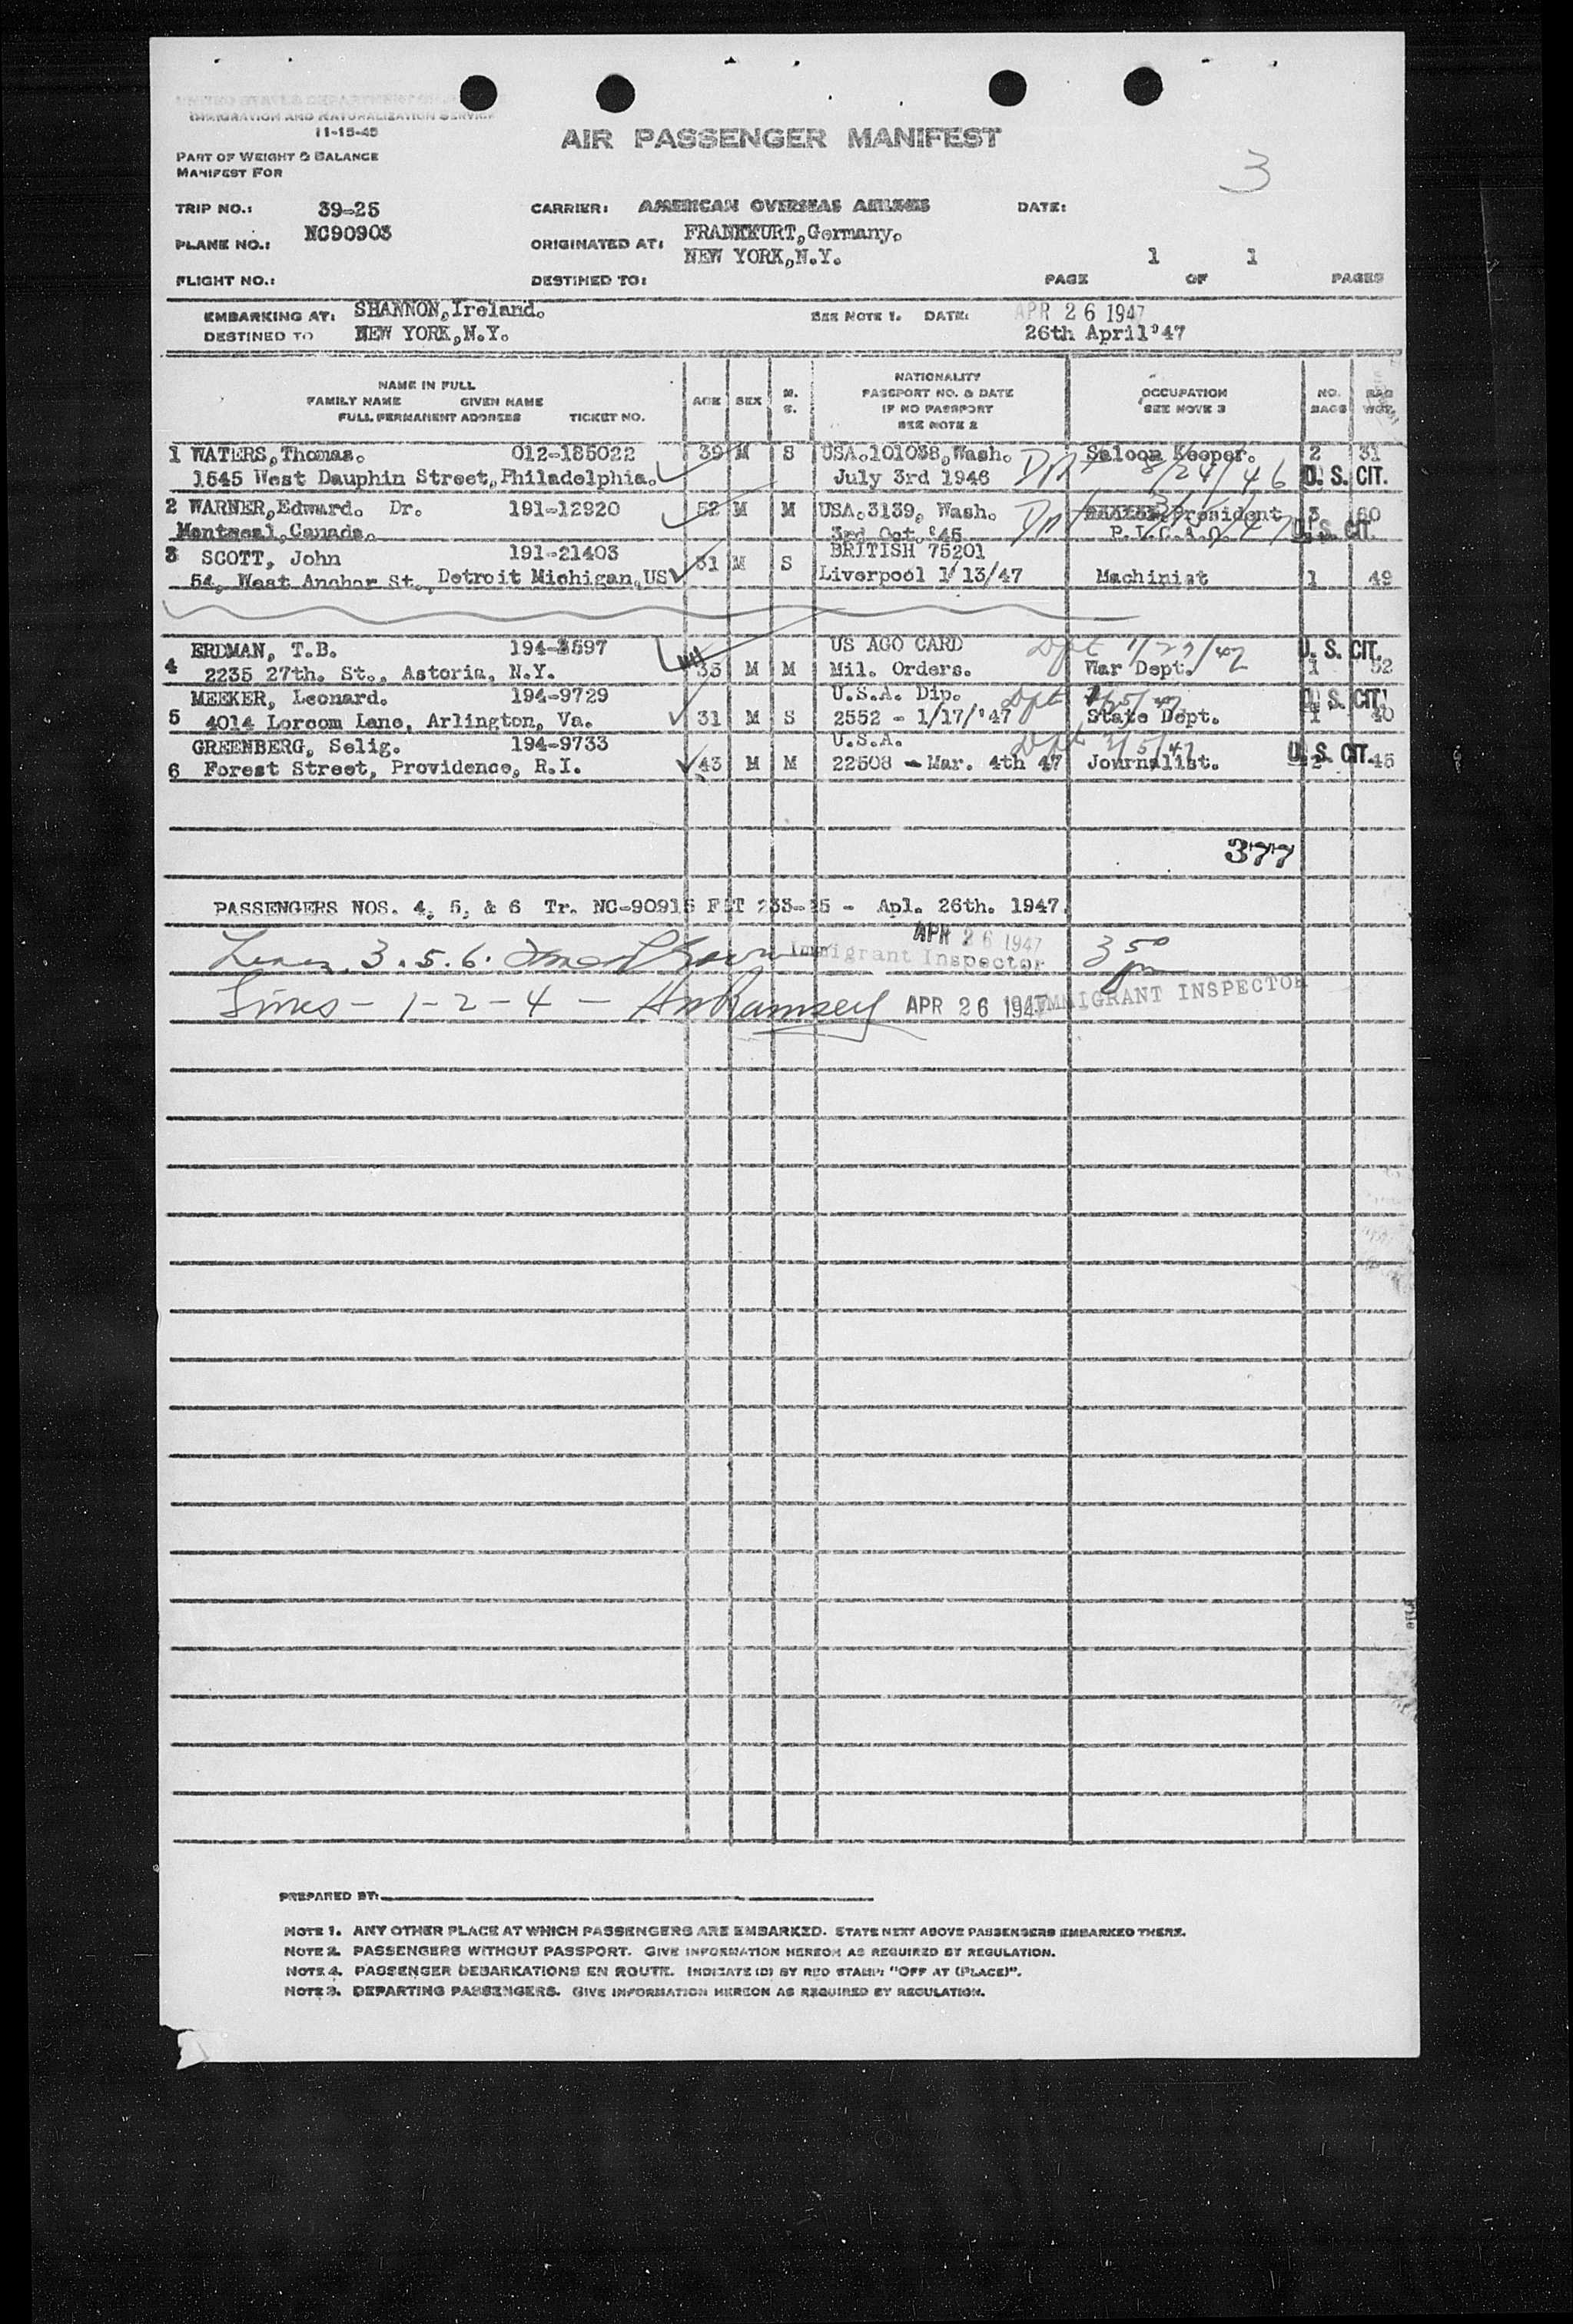 UNITED STATES DEPARTMENT OF
IMMIGRATION AND NATURALIZATION SERVICE
11-15-45
AIR PASSENGER MANIFEST
PART OF WEIGHT & BALANCE
MANIFEST FOR
3
TRIP NO.: 39-25 CARRIER: AMERICAN OVERSEAS AIRLINES DATE:
PLANE NO.: NC90903 ORIGINATED AT: FRANKKURT,Germany.
NEW YORK,N.Y. 1 1
FLIGHT NO.: DESTINED TO: PAGE OF PAGES
EMBARKING AT: SHANNON,Ireland. SEE NOTE 1. DATE: APR 26 1947
DESTINED TO NEW YORK,N.Y. 26th April'47
NAME IN FULL
FAMILY NAME GIVEN NAME
FULL PERMANENT ADDRESS TICKET NO.
AGE SEX M. S.
NATIONALITY
PASSPORT NO. & DATE
IF NO PASSPORT
SEE NOTE 2
OCCUPATION
SEE NOTE 3
NO. BAGS
BAG WGT.
1 WATERS,Thomas. 012-185022 39 M S USA.101038,Wash. Saloon Keeper. 2 31
1545 West Dauphin Street,Philadelphia. July 3rd 1946 8/24/46 U. S. CIT.
2 WARNER,Edward. Dr. 191-12920 52 M M USA.3139, Wash. President 3 60
Montreal,Canada. 3rd Oct.'45 P.I.C.A.O. U. S. CIT.
3 SCOTT, John 191-21403 31 M S BRITISH 75201
54, West Anchor St., Detroit Michigan,US Liverpool 1/13/47 Machinist 1 49
ERDMAN, T.B. 194-3597 US AGO CARD Dpt U. S. CIT.
4 2235 27th. St., Astoria, N.Y. 35 M M Mil. Orders. War Dept. 1 52
MEEKER, Leonard. 194-9729 U.S.A. Dip. Dpt U. S. CIT.
5 4014 Lorcom Lane, Arlington, Va. 31 M S 2552 - 1/17/'47 State Dept. 1 40
GREENBERG, Selig. 194-9733 U.S.A. Dpt 3/5/47 U. S. CIT.
6 Forest Street, Providence, R.I. 43 M M 22508 - Mar. 4th 47 Journalist. 2 45
377
PASSENGERS NOS. 4, 5, & 6 Tr. NC-90915 FLT 233-25 - Apl. 26th. 1947.
Lines 3.5.6. APR 26 1947 Immigrant Inspector 3 50 pm
Lines - 1-2-4 - Ramsey APR 26 1947 IMMIGRANT INSPECTOR
PREPARED BY:
NOTE 1. ANY OTHER PLACE AT WHICH PASSENGERS ARE EMBARKED. STATE NEXT ABOVE PASSENGERS EMBARKED THERE.
NOTE 2. PASSENGERS WITHOUT PASSPORT. GIVE INFORMATION HEREON AS REQUIRED BY REGULATION.
NOTE 4. PASSENGER DEBARKATIONS EN ROUTE. INDICATE (D) BY RED STAMP: "OFF AT (PLACE)".
NOTE 3. DEPARTING PASSENGERS. GIVE INFORMATION HEREON AS REQUIRED BY REGULATION.